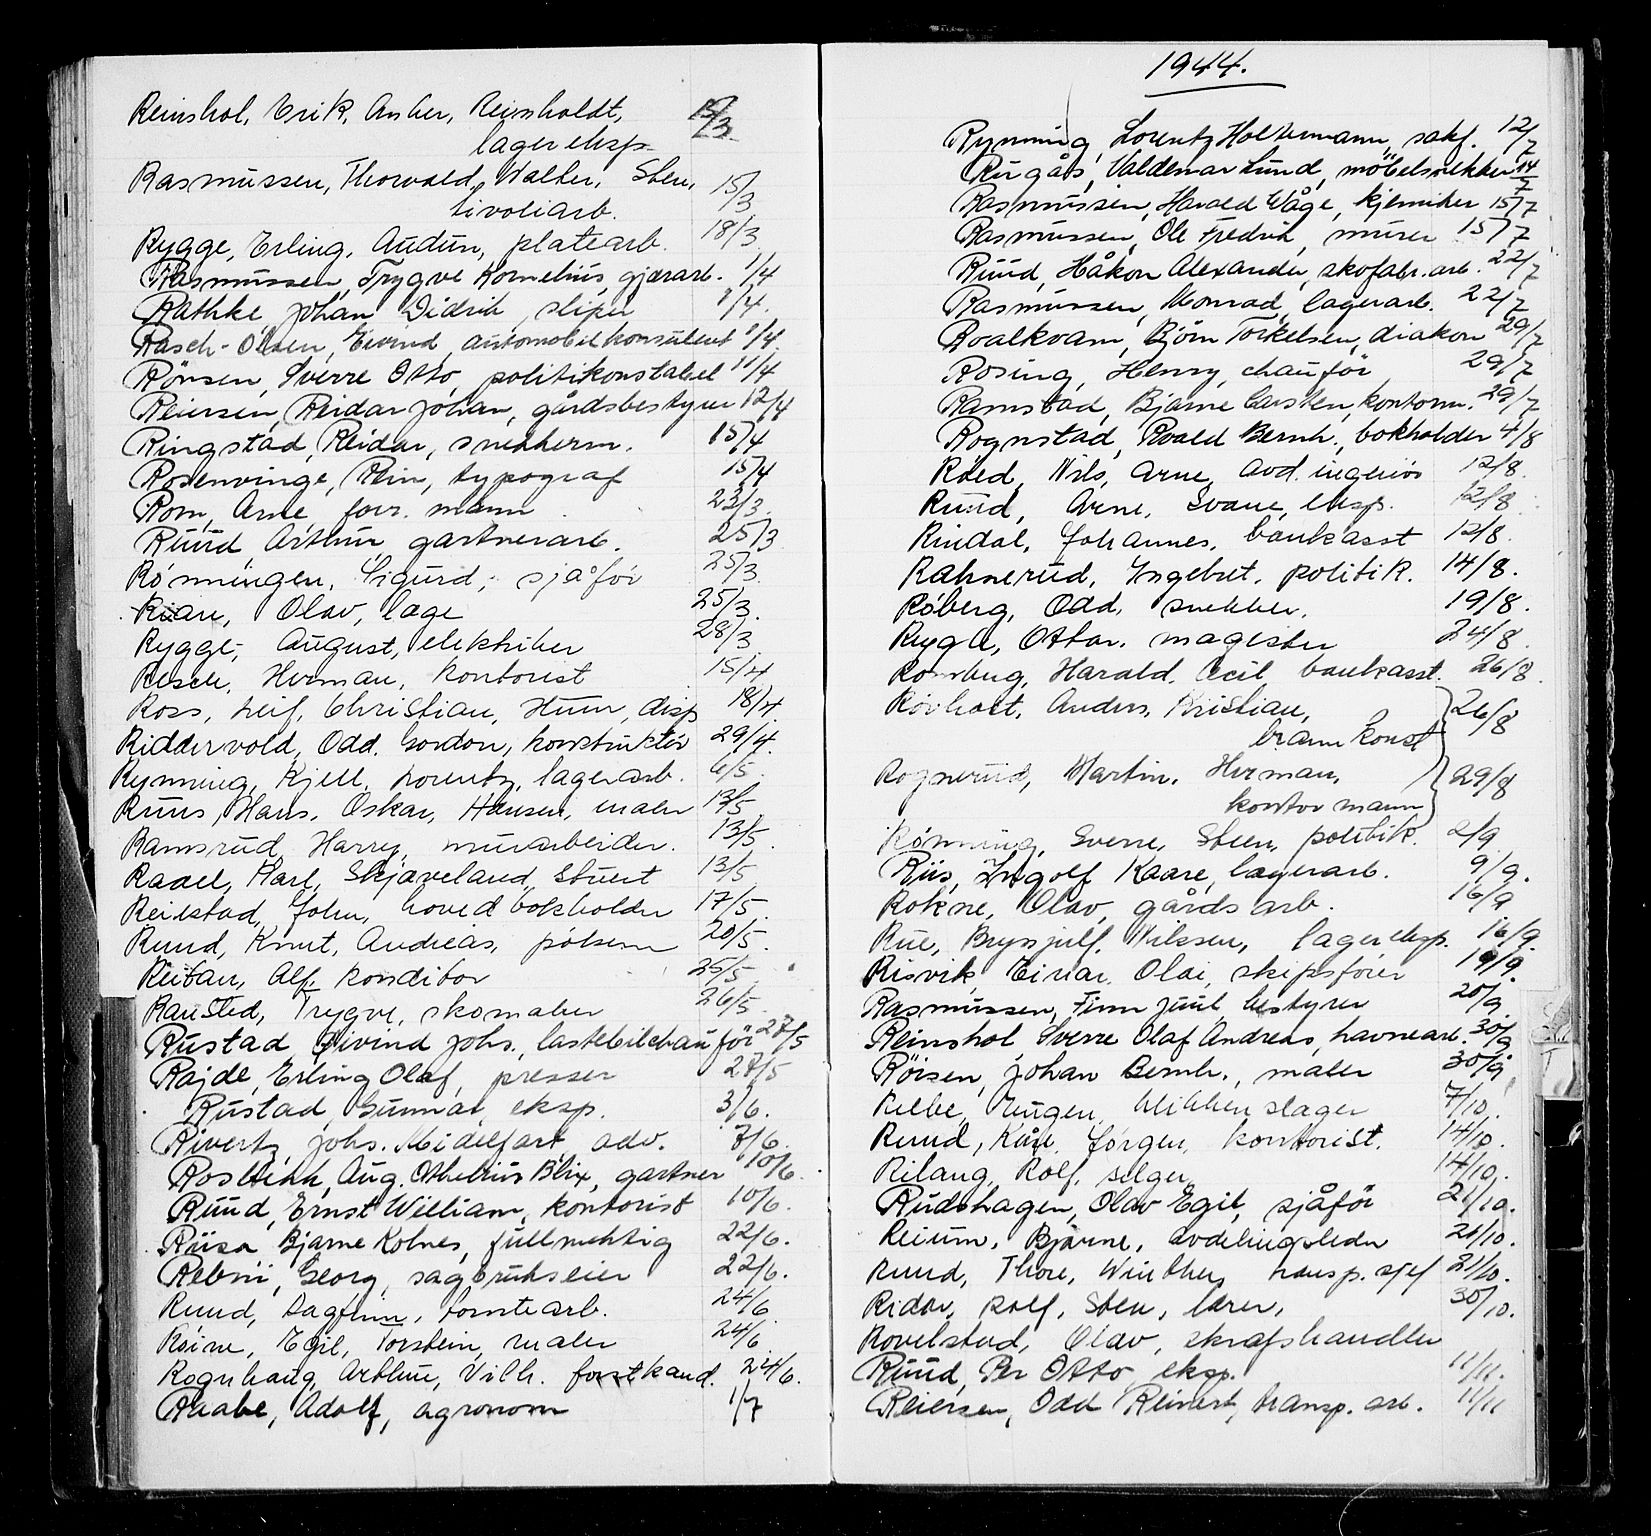 Reinshol, Erik, Anker, Reinholdt, 15/3
lagereksp.
Rasmussen, Thorvald, Walter, Sten, 15/3
tivoliarb.
Rygge, Erling, Audun, platearb. 18/3
Rasmussen, Trygve Kornelius, gjærarb. 1/4
Rathke, Johan Didrik, sliper 1/4.
Rasch-Olsen, Eivind, automobilkonsulent 1/4.
Rönsen, Sverre Otto, politikonstabel 11/4
Reiersen, Reidar Johan, gårdsbestyrer 12/4
Ringstad, Reidar, snekkerm. 15/4
Rosenvinge, Rein, typograf 15/4
Rom, Arne, forr. mann 23/3.
Ruud Arthur gartnerarb. 25/3
Rønningen, Sigurd, sjåfør 25/3.
Olav, 25/3.
Rygge, August, elektriker 28/3.
Resch, Herman, kontorist 15/4
Ross, Leif, Christian, disp 18/4.
Riddervold, Odd. Gordon, konstruktør 29/4.
Rynning, Kjell, Lorentz, lagerarb. 6/5.
Ruus, Hans, Oskar, Hansen, maler 13/5
Ramsrud, Harry, murarbeider. 13/5.
Raael, Karl, Skjæveland, stuert 13/5
Reilstad, John, hovedbokholder 17/5.
Ruud, Knut, Andreas, pølsem 20/5.
Reitan, Alf, konditor 25/5.
Ransted, Trygve, skomaker 26/5.
Rustad, Öivind Johs., lastebilchauför 27/5
Rajde, Erling Olaf, presser 27/5
Rustad, Gunnar, eksp. 3/6.
Rivertz, Johs. Midelfart, adv. 7/6.
Aug. Othelius Blix, gartner 10/6.
Ruud, Ernst William, kontorist 10/6.
Riisa Bjarne Kolnes, fullmektig 22/6.
Georg, sagbrukseier 22/6.
Ruud, Dagfinn, tomtearb. 24/6
Roine, Egil, Torstein, maler 24/6
Rognhaug, Arthur, Vilh. forstkand. 24/6.
Raabe, Adolf, agronom 1/7
1944.
Rynning, Lorentz Holtermann, sakf. 12/7
Rugås, Valdemar Lund, möbelsnekker 14/7
Rasmussen, Harald Våge, kjemiker 15/7
Rasmussen, Ole Fredrik, murer 15/7
Ruud, Håkon Alexander, skofabr.arb. 22/7
Rasmussen, Monrad, lagerarb. 22/7
Roalkvam, Bjørn Torkelsen, diakon 29/7
Rosing, Henry, chauför 29/7
Ramstad, Bjarne Carsten, kontorm. 29/7
Rognstad, Roald Bernh., bokholder 4/8
Roed, Nils, Arne, avd. ingeniør 12/8.
Ruud, Arne, Svane, eksp. 12/8
Rindal, Johannes, bankasst 12/8.
Rahnerud, Ingebret, politik. 14/8.
Røberg, Odd, snekker. 19/8.
Rygh, Ottar. magister 24/8.
Romberg, Harald, Cecil, bankasst. 26/8.
Anders, Kristian, 26/8
brannkonst
Rognerud, Martin, Herman, 29/8
kontormann
Rønning, Sverre, Steen, politik. 2/9
Riis, Ingolf Kaare, lagerarb. 9/9.
Rokne, Olav, gårdsarb. 16/9
Rue, Brynjulf, Nilssen, lagereksp. 16/9.
Risvik, Einar, Olai, skipsfører 19/9.
Rasmussen, Finn Juul, bestyrer 20/9
Reinshol, Sverre Olaf Andreas, havnearb. 30/9
Röisen, Johan Bernh., maler 30/9
Eugen, blikkenslager 7/10.
Ruud, Kåre, Jørgen, kontorist. 14/10.
Rilang, Rolf, selger 14/10.
Rudshagen, Olav Egil, sjåför 21/10.
Reium, Bjarne, avdelingsleder 21/10.
Ruud, Thore, Winther, transp. sjef 21/10.
Rolf, Sten, lærer, 30/10.
Rovelstad, Olav, skraphandler
Ruud, Per Otto, eksp. 11/11.
Reiersen, Odd Reinert, transp. arb. 11/11